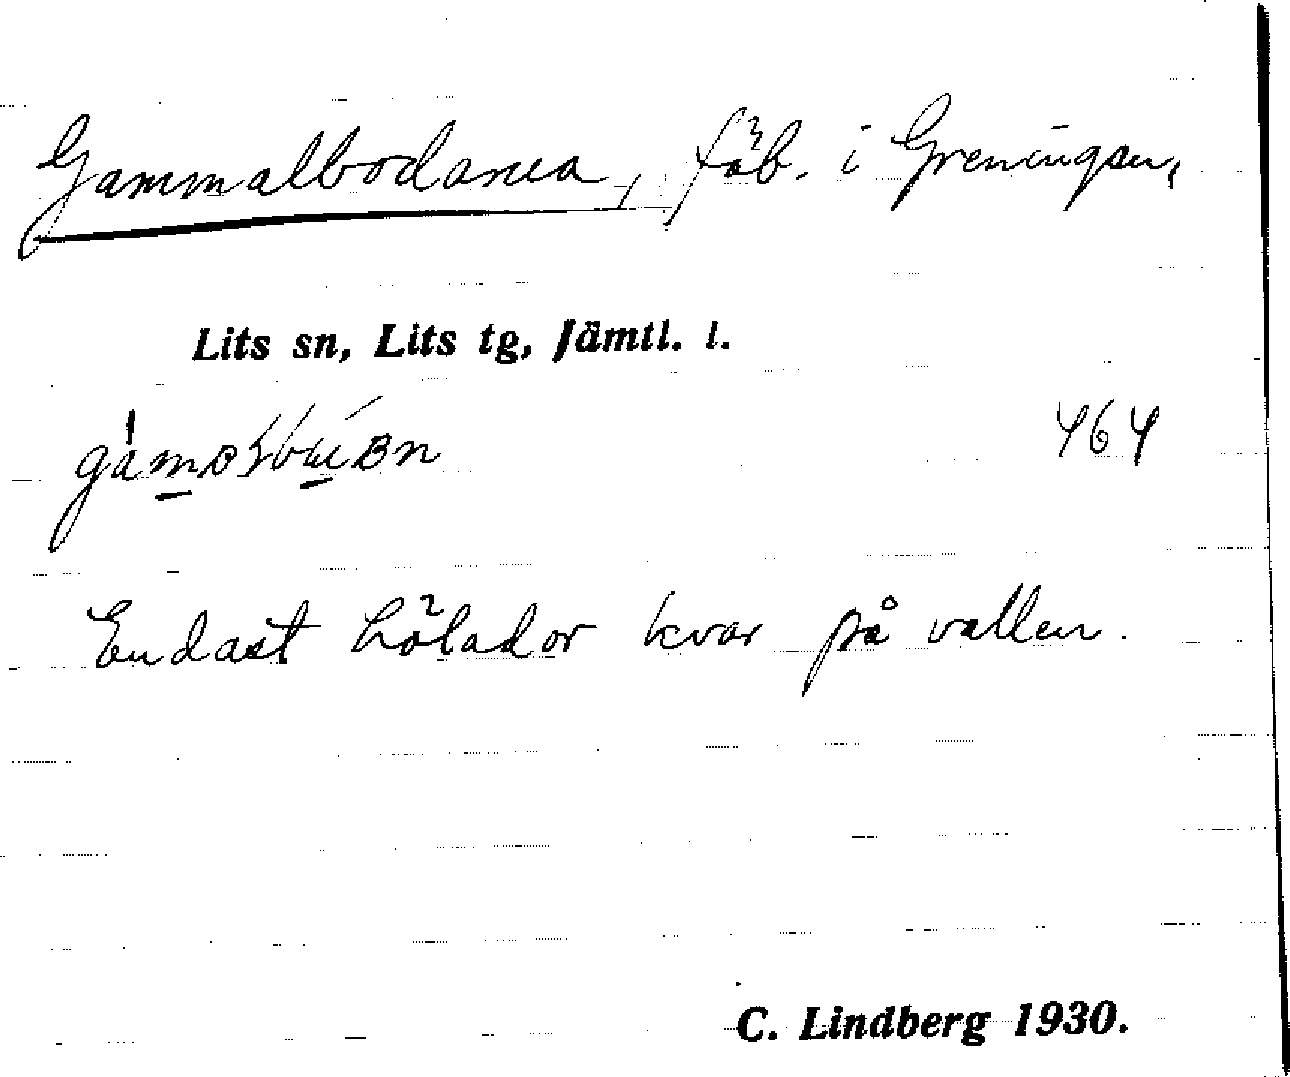 Gammalbodarna, fäb. i Greningen,
Lits sn, Lits tg, Jämtl. l.
464
Endast hölador kvar på vallen.
C. Lindberg 1930.